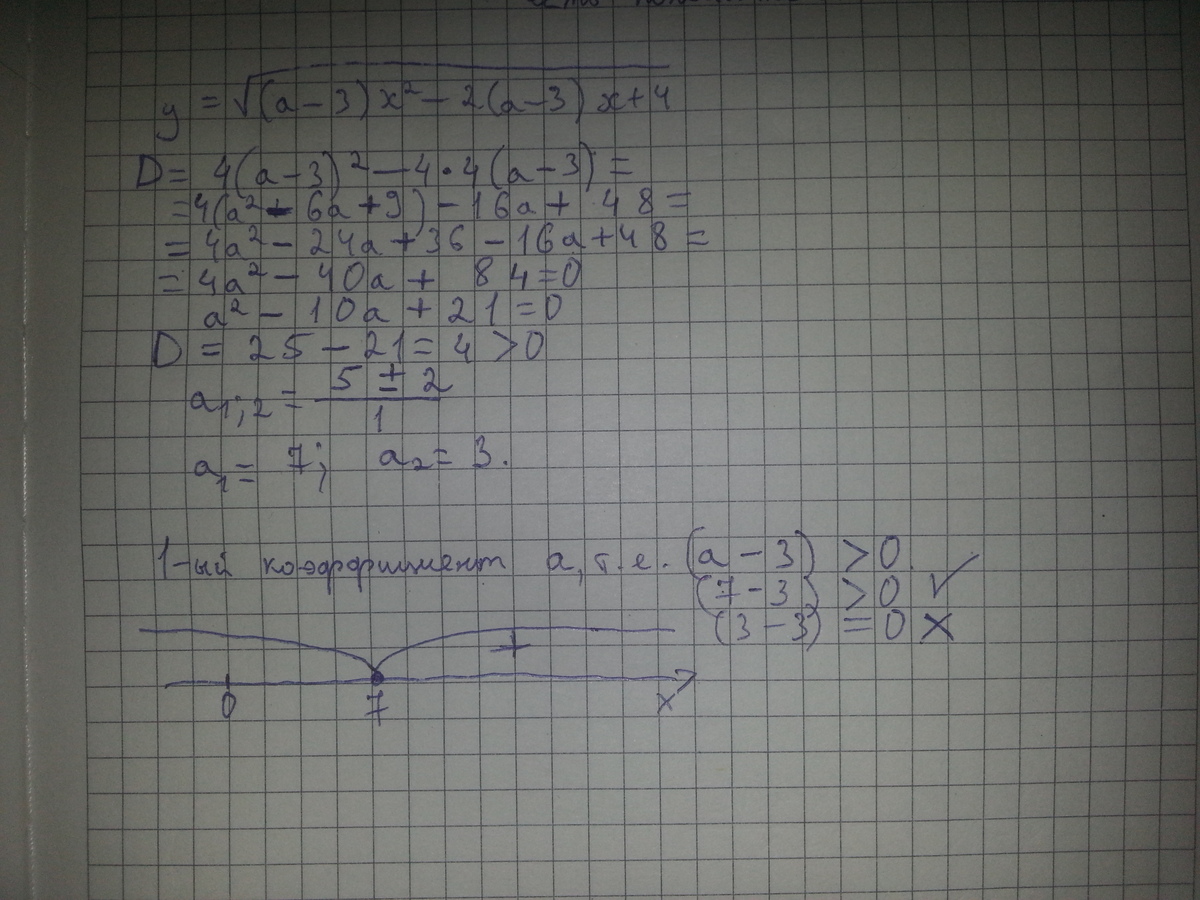 y = √(a-3)x²-2(a-3)x+4
D = 4(a-3)²-4•4(a-3)=
=4(a²-6a+9)-16a+48=
=4a²-24a+36-16a+48=
=4a²-40a+84=0
a²-10a+21=0
D = 25-21=4 >0
a₁;₂ = 5±2/1
a₁= 7; a₂= 3.
1-ый коэффициент a, т.е. (a-3) >0
(7-3) >0 ✓
(3-3) =0 ✗
+
0 7 x